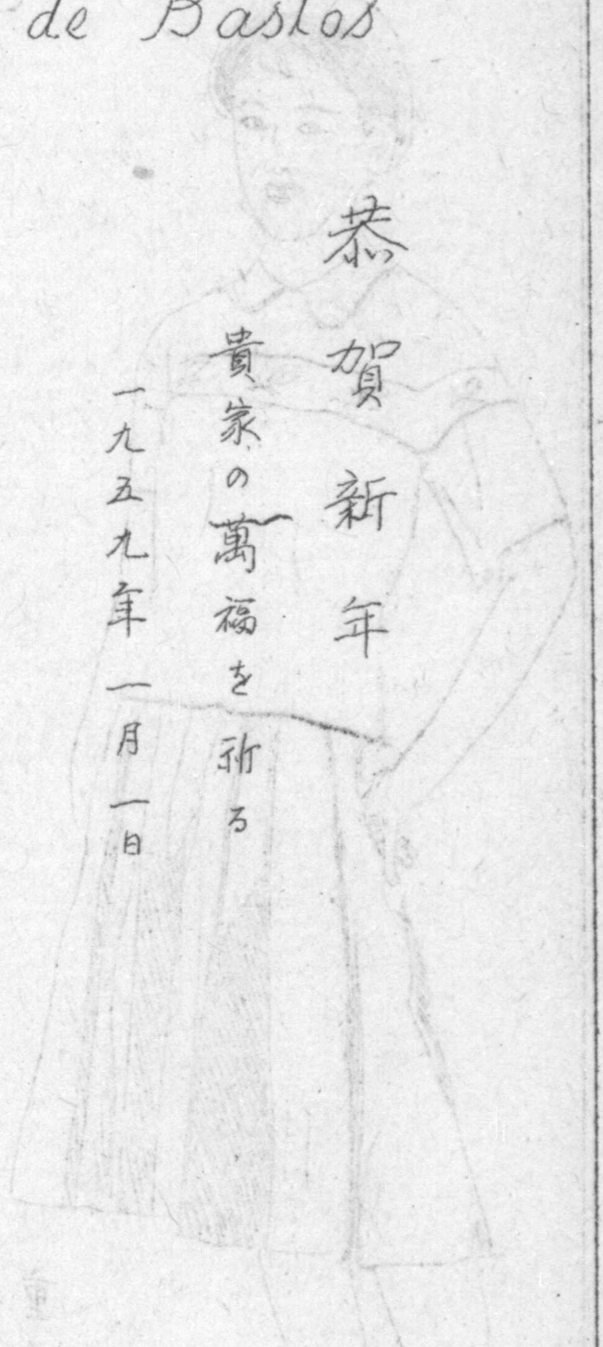 de Bastos
恭賀新年
貴家の萬福を祈る
一九五九年一月一日